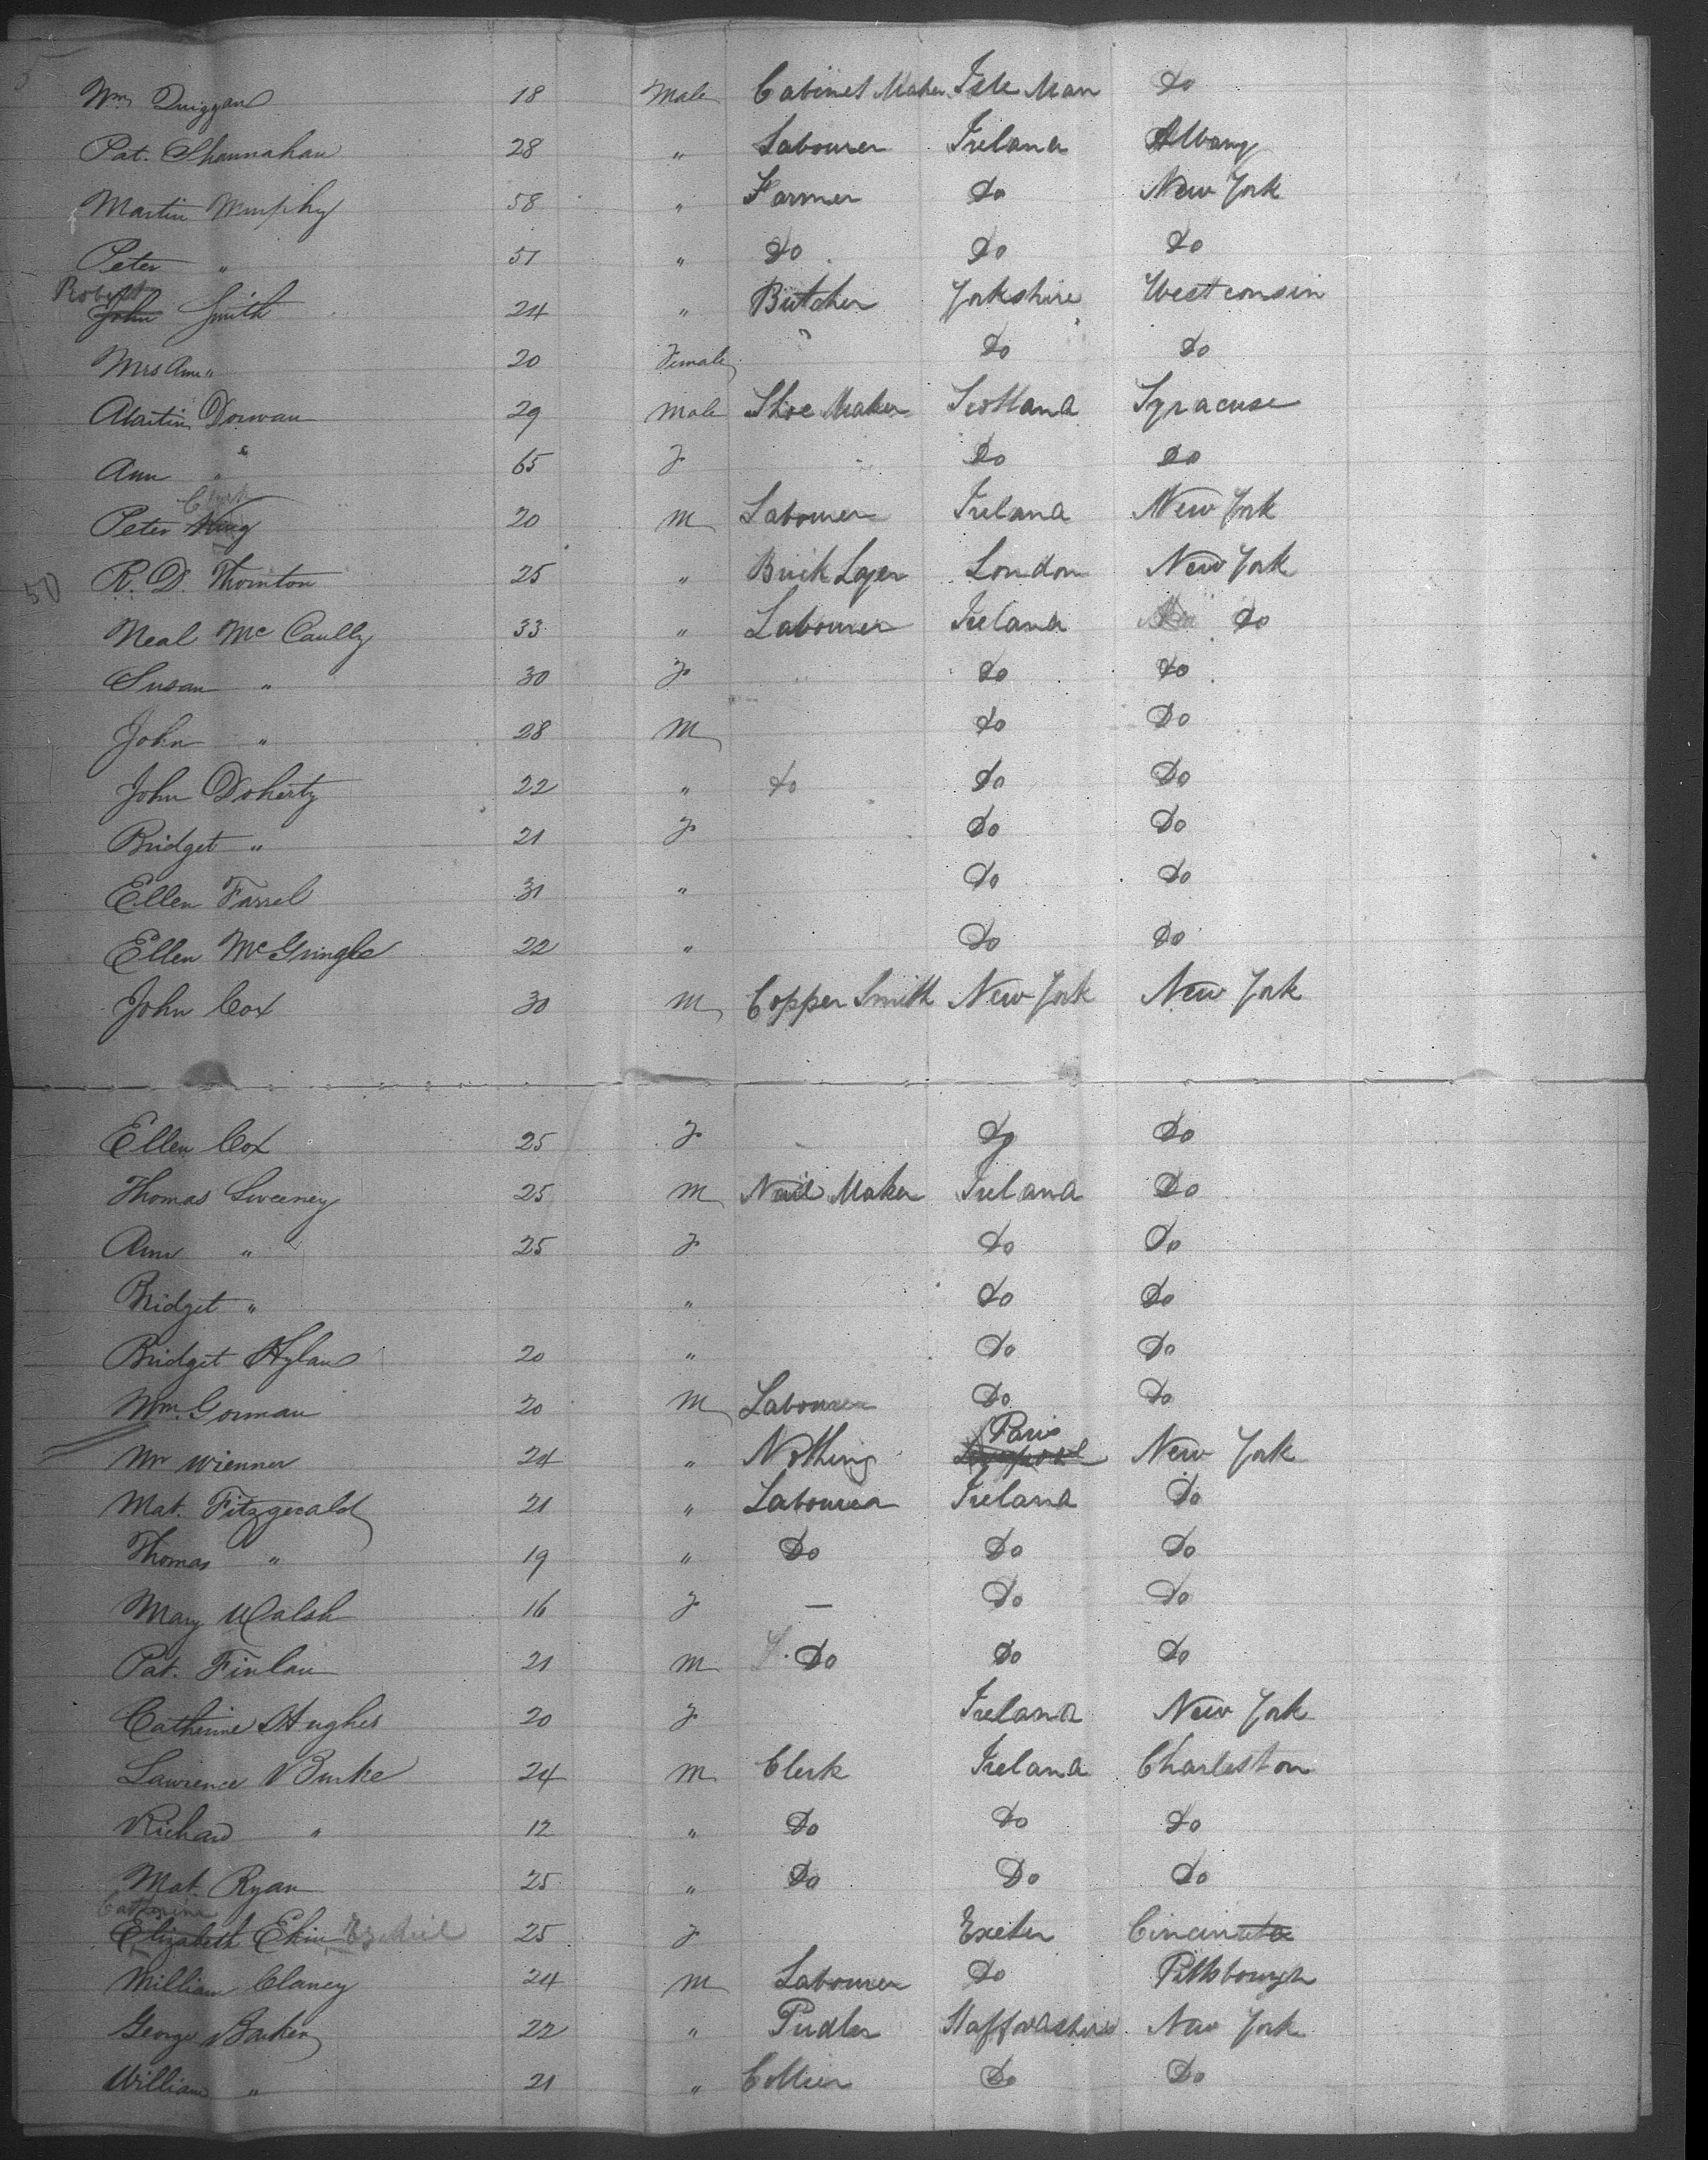 Wm Quiggan 18 Male Cabinet Maker Isle Man Do
Pat. Shannahan 28 " Labourer Ireland Albany
Martin Murphy 58 " Farmer Do New York
Peter " 51 " Do Do Do
Robert
John Smith 24 " Butcher Yorkshire Westconsin
Mrs Ann " 20 Female " Do Do
Martin Dorwan 29 Male Shoe Maker Scotland Syracuse
Ann " 65 F Do Do
Peter King 20 M Labourer Ireland New York
50 R. D. Thornton 25 " Brick Layer London New York
Neal McCaully 33 " Labourer Ireland Do
Susan " 30 F Do Do
John " 28 M Do Do
John Doherty 22 " Do Do Do
Bridget " 21 F Do Do
Ellen Farrel 31 " Do Do
Ellen McGringle 22 " Do Do
John Cox 30 M Copper Smith New York New York
Ellen Cox 25 F Do Do
Thomas Sweeney 25 M Nail Maker Ireland Do
Ann " 25 F Do Do
Bridget " " Do Do
Bridget Hylan 20 " Do Do
Wm. Gorman 20 M Labourer Do Do
Paris
Mr Wienner 24 " Nothing New York
Mat. Fitzgerald 21 " Labourer Ireland Do
Thomas " 19 " Do Do Do
Mary Walsh 16 F — Do Do
Pat. Finlan 21 M Do Do Do
Catherine Hughes 20 F Ireland New York
Lawrence Burke 24 M Clerk Ireland Charleston
Richard " 12 " Do Do Do
Mat. Ryan 25 " Do Do Do
Catherine
Elizabeth 25 F Exeter Cincinate
William Clancy 24 M Labourer Do Pittsbourgh
George Barker 22 " Pudler Staffordshire New York
William " 21 " Collier Do Do